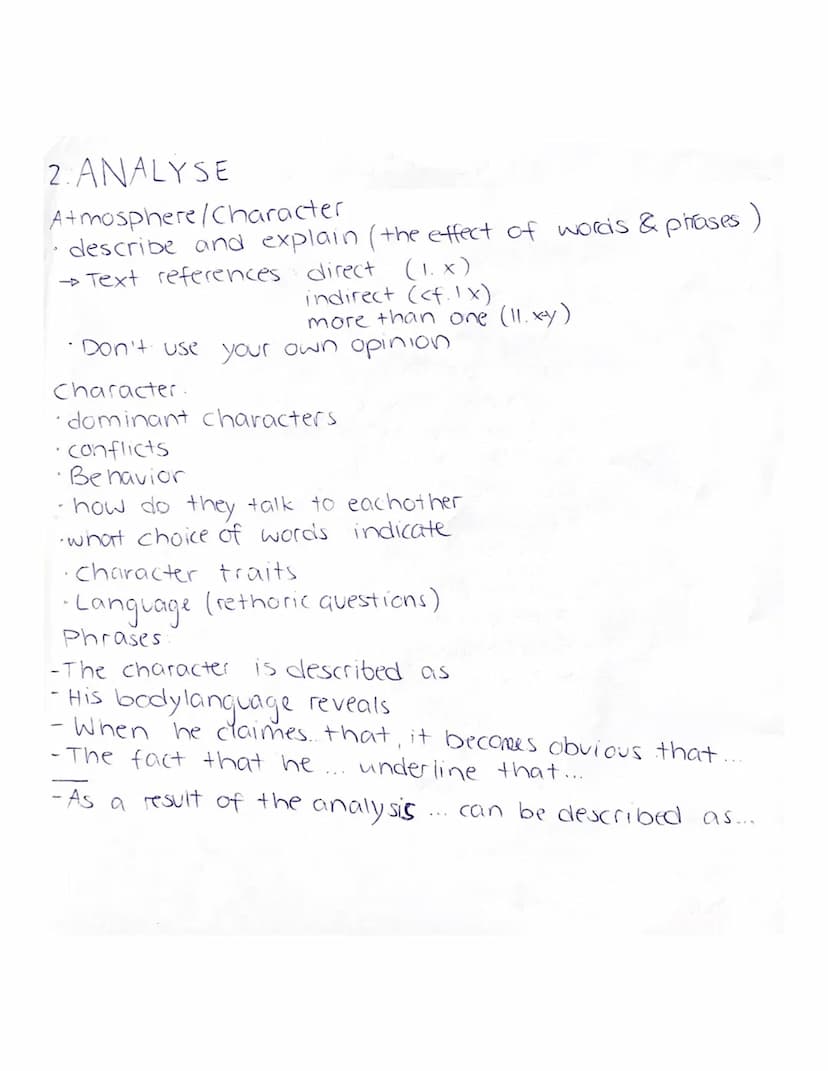 2. ANALYSE
Atmosphere/Character
· describe and explain (the effect of words & phrases)
→ Text references direct (l. x)
indirect (cf. l x)
more than one (ll. x-y)
· Don't use your own opinion
Character.
· dominant characters
· conflicts
· Behavior
- how do they talk to eachother
· what choice of words indicate
· Character traits
· Language (rethoric questions)
Phrases:
- The character is described as
- His bodylanguage reveals
- When he claimes.. that, it becomes obvious that...
- The fact that he ... underline that...
- As a result of the analysis ... can be described as...